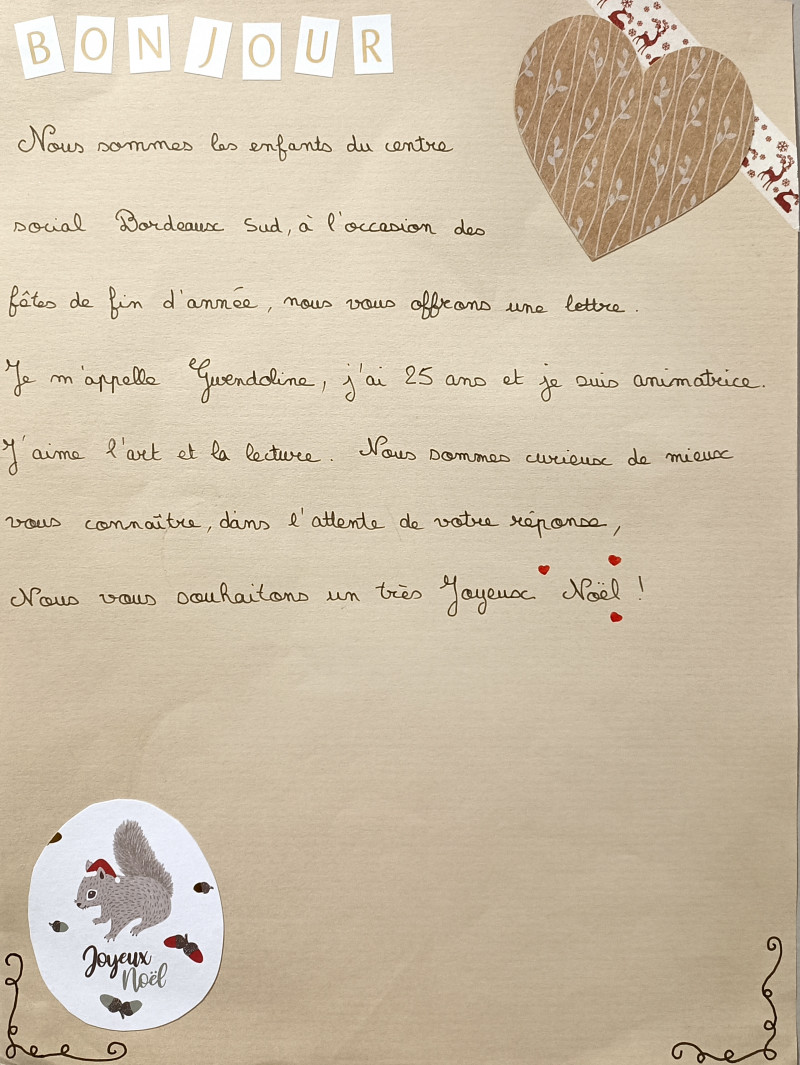 BONJOUR
Nous sommes les enfants du centre
social Bordeaux Sud, à l'occasion des
fêtes de fin d'année, nous vous offrons une lettre.
Je m'appelle Gwendoline, j'ai 25 ans et je suis animatrice.
J'aime l'art et la lecture. Nous sommes curieux de mieux
vous connaître, dans l'attente de votre réponse,
Nous vous souhaitons un très Joyeux Noël !
Joyeux
Noël